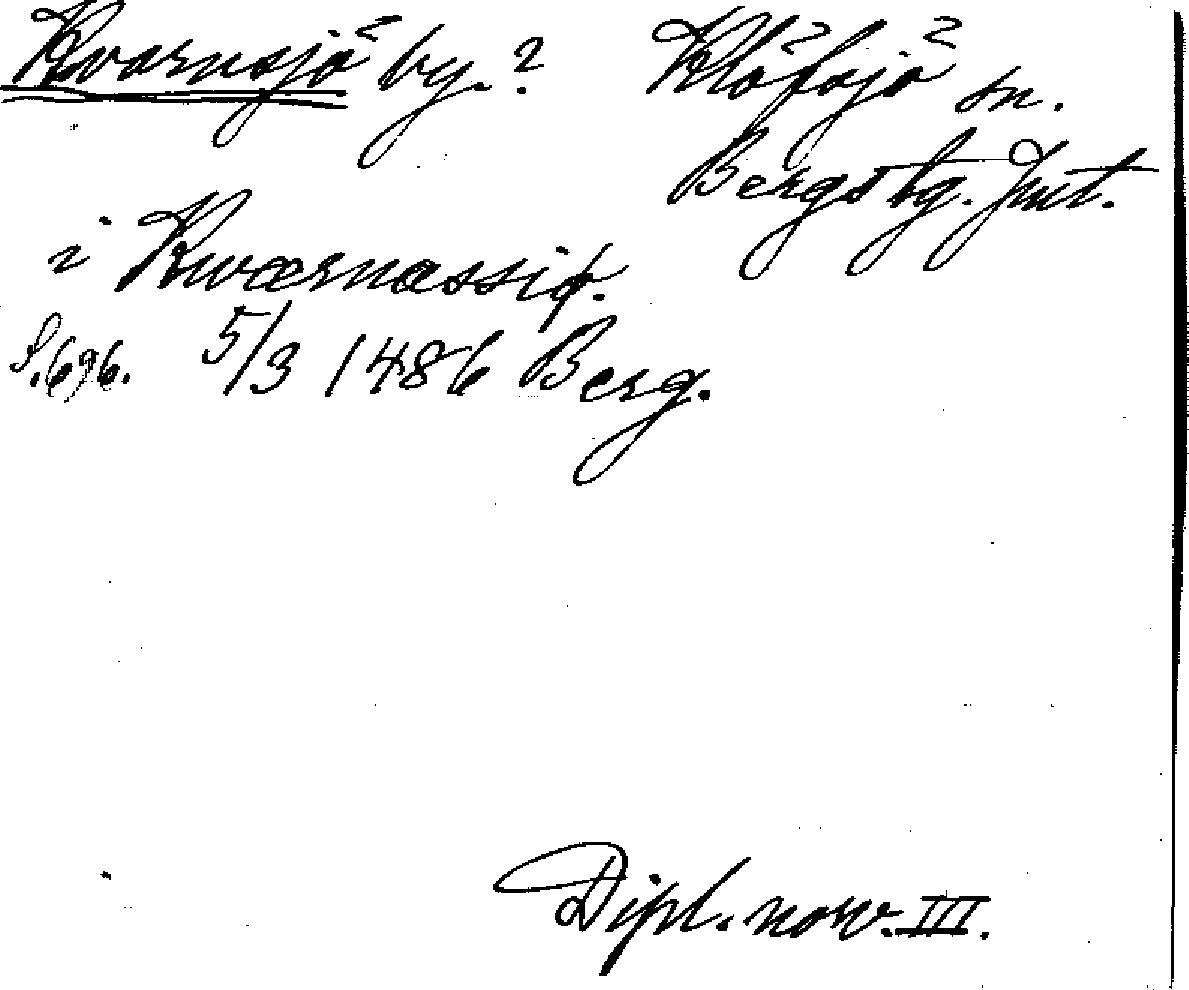 Kvarnsjö by.? Klöfsjö sn.
Bergs tg. Jmt.
i Kwærnæssiø.
S.696. 5/3 1486 Berg.
Dipl. norv. III.